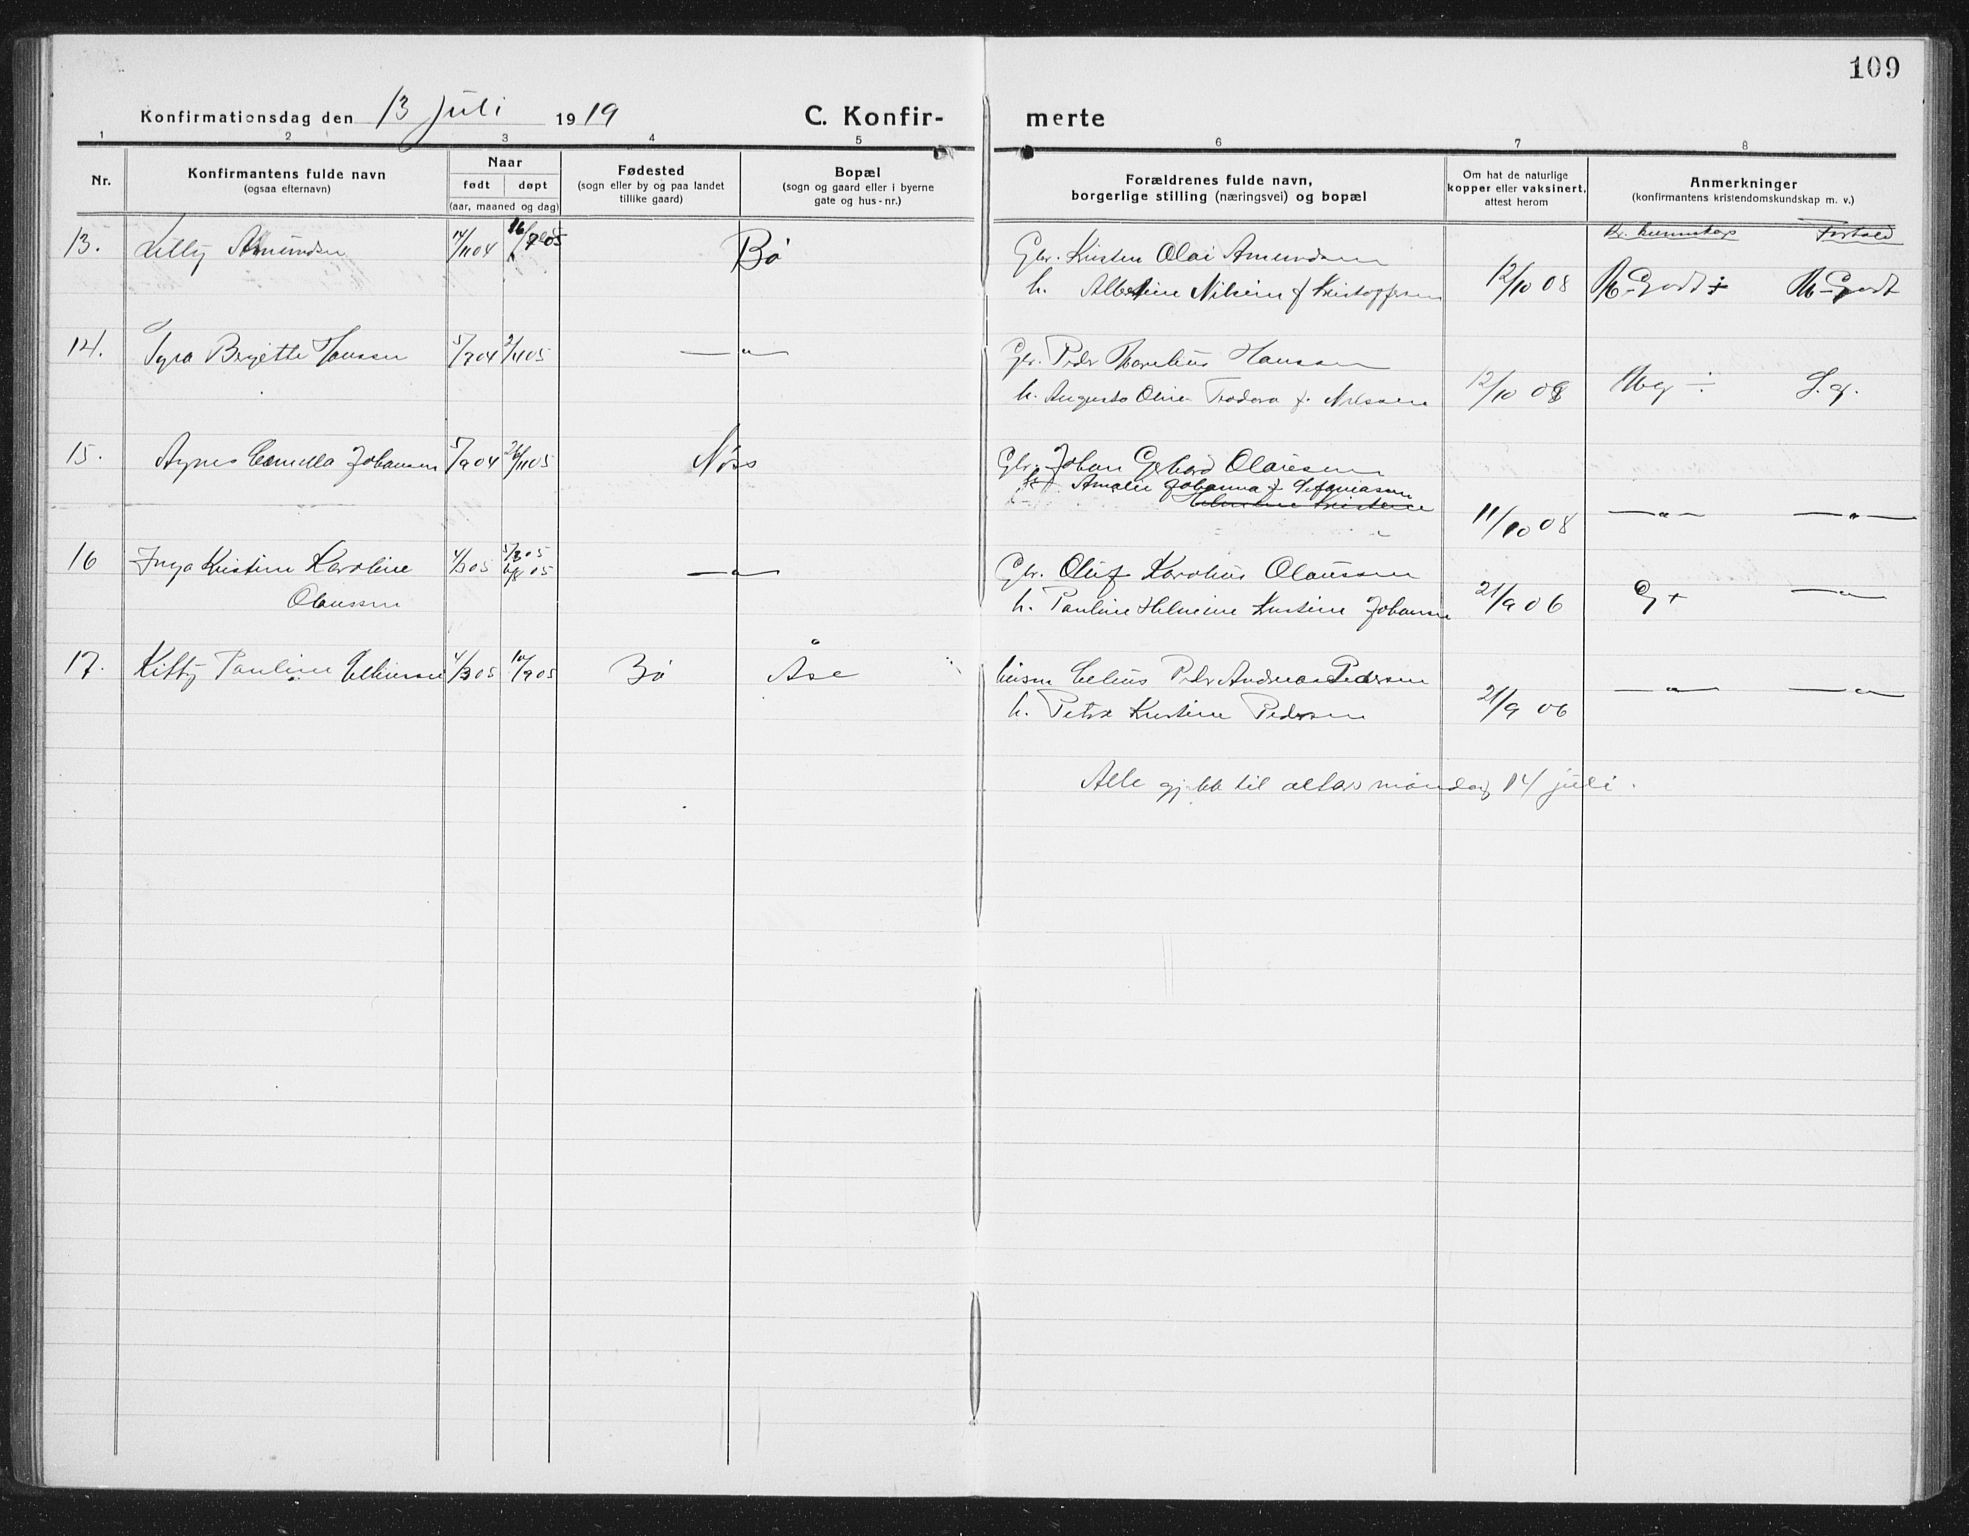 109
Konfirmationsdag den 13 juli 1919
C. Konfir- merte
1 2 3 4 5 6 7 8
Nr.
Konfirmantens fulde navn
(ogsaa efternavn)
Naar
født døpt
(aar, maaned og dag)
Fødested
(sogn eller by og paa landet
tillike gaard)
Bopæl
(sogn og gaard eller i byerne
gate og hus-nr.)
Forældrenes fulde navn,
borgerlige stilling (næringsvei) og bopæl
Om hat de naturlige
kopper eller vaksinert,
attest herom
Anmerkninger
(konfirmantens kristendomskundskap m. v.)
Kr. kunnskap Forhold
13. Lilly Amundsen 14/11 04 16/7 05 Bø Gbr. Kristen Olai Amundsen
h. Albertine Nilsine f Kristoffersen 12/10 08 M-Godt ÷ M-Godt
14. Syra Birgitte Hanssen 5/9 04 2/4 05 —"— Gbr. Peder Hanssen
h. Augusta Oline Teodora f. Nilssen 12/10 08 Mg ÷ S. g.
15. Agnes Camilla Johansen 5/9 04 26/11 05 Nøss Gbr. Johan Gerhard Olaisen
Amalie Johanna f Sefaniasen
Kristine
11/10 08 —"— —"—
16 Inga Kristine Karoline 4/3 05 5/3 05 —"— Gbr. Oluf Karolius Olaussen
Olaussen 6/8 05 h. Pauline Helmine Kristine Johansen 21/9 06 G + —"—
17. Kitty Pauline 4/3 05 10/9 05 Bø Åse Celius Peder Andreas Pedersen
h. Petra Kristine Pedersen 21/9 06 —"— —"—
Alle gikk til alters måndag 14 juli.